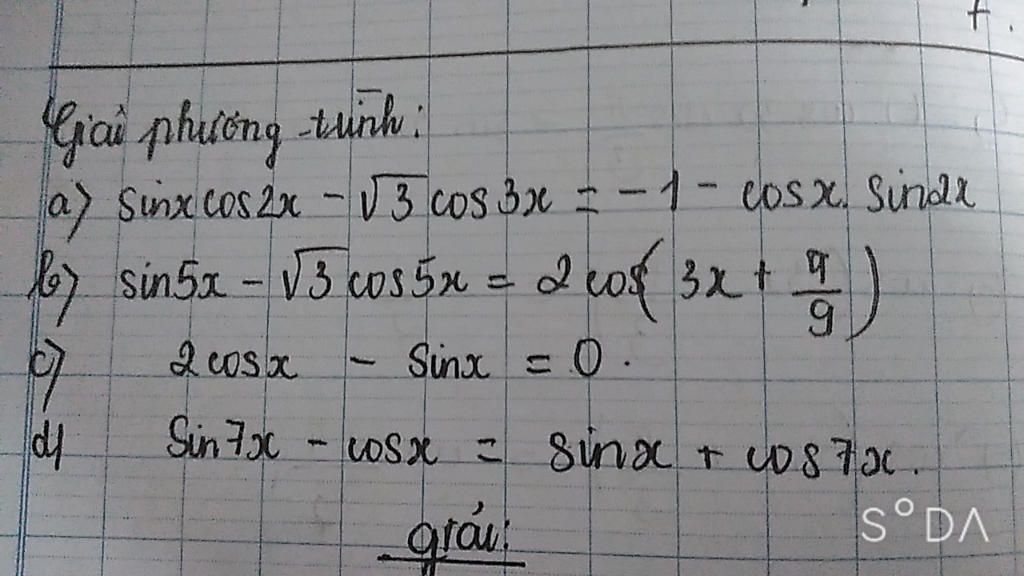 f.
Giải phương trình:
a) sinx cos2x - √3 cos3x = -1 - cosx. sin2x
b) sin5x - √3 cos5x = 2cos(3x + π/9)
c) 2cosx - sinx = 0.
d) Sin7x - cosx = sinx + cos7x.
giải:
S°DA